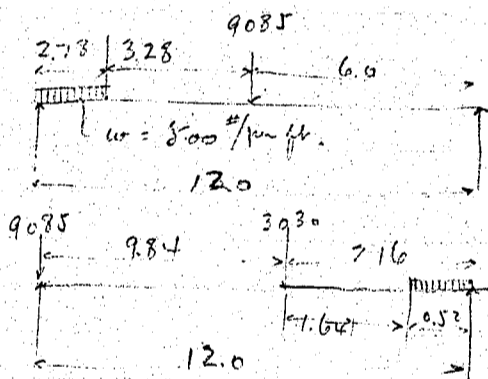 9085
2.73 3.28 6.0
w = 500 #/per ft.
12.0
9085 3030
9.84 2.16
1.64 0.52
12.0